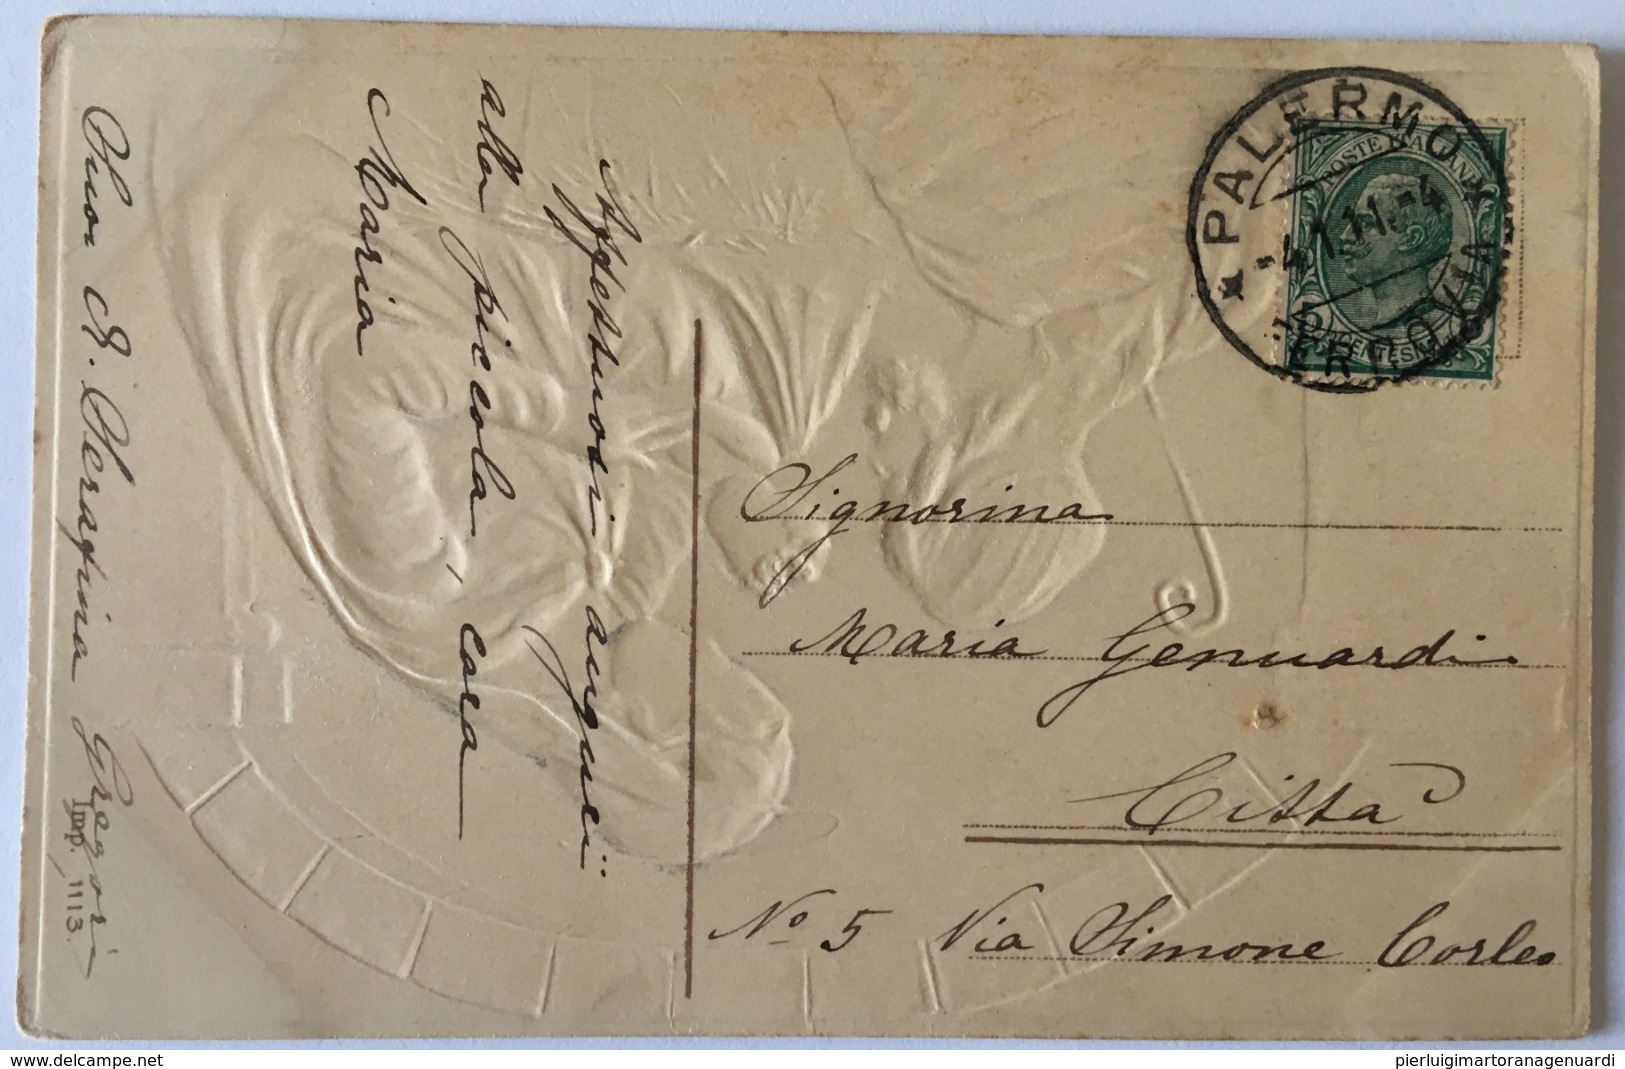 Affettuosi auguri
alla piccola, cara
Maria
Suor A. Serafina Gregori
Imp. 1113.
PALERMO
FERROVIA
4.1.11.-4
POSTE ITALIANE
CENTESIMI
Signorina
Maria Genuardi
Città
Nº 5 Via Simone Corleo
delcampe.net
pierluigimartoranagenuardi